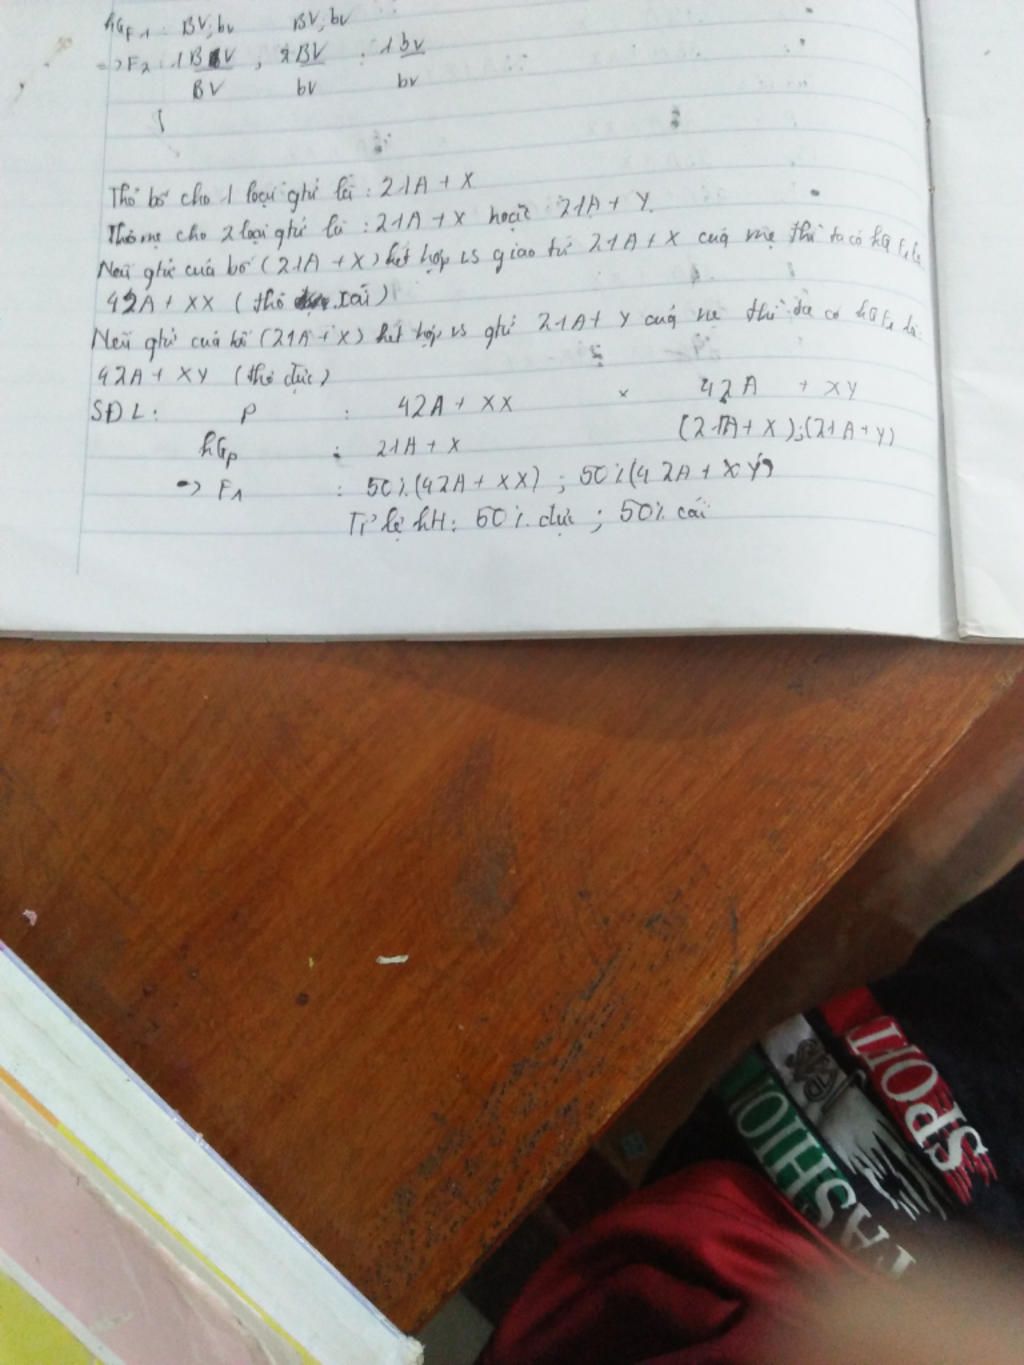 hGF1 : BV; bv BV; bv
=> F2 : 1 BV/BV ; 2 BV/bv : 1 bv/bv
Thỏ bố cho 1 loại gtử là : 21A + X
Thỏ mẹ cho 2 loại gtử là : 21A + X hoặc 21A + Y.
Nếu gtử của bố (21A + X) kết hợp vs giao tử 21A + X của mẹ thì ta có hG F1 là
42A + XX (thỏ cái)
Nếu gtử của bố (21A + X) kết hợp vs gtử 21A + Y của mẹ thì ta có hGF1 là
42A + XY (thỏ đực)
SĐL : P : 42A + XX x 42A + XY
hGp : 21A + X (21A + X) ; (21A + Y)
=> F1 : 50% (42A + XX) ; 50% (42A + XY)
Tỉ lệ kH : 50% đực ; 50% cái
SPORT
FASHION